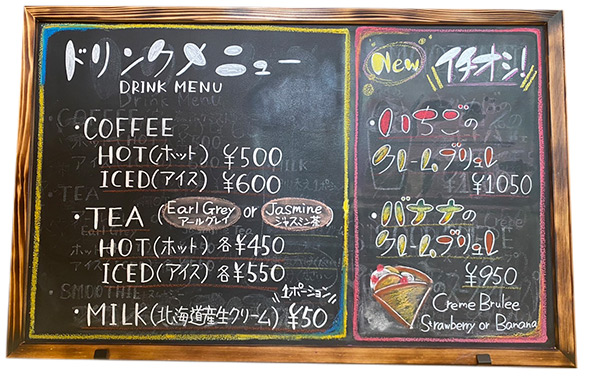 ドリンクメニュー
DRINK MENU
・COFFEE
HOT(ホット) ¥500
ICED(アイス) ¥600
・TEA Earl Grey アールグレイ or Jasmine ジャスミン茶
HOT(ホット)各¥450
ICED(アイス)各¥550
1ポーション
・MILK(北海道産生クリーム) ¥50
New イチオシ!
・いちごの
クレームブリュレ
¥1050
・バナナの
クレームブリュレ
¥950
Creme Brulee
Strawberry or Banana